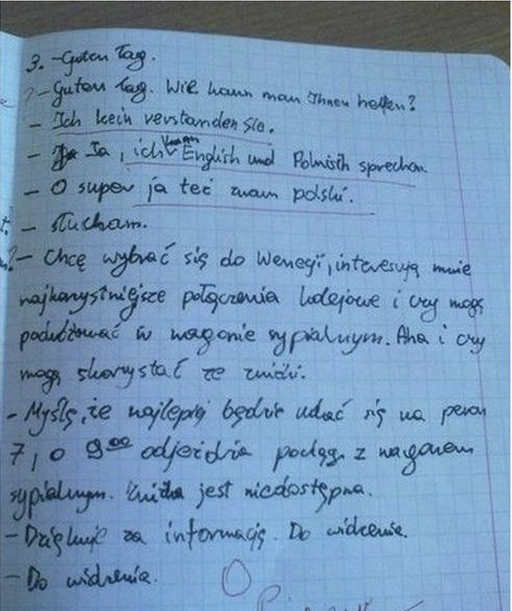 3. -Guten Tag.
?-Guten Tag. Wie kann man Ihnen helfen?
- Ich kein verstanden Sie.
- Ja, ich kann English und Polnisch sprechen.
- O super ja też znam polski.
- Słucham.
?- Chcę wybrać się do Wenecji, interesują mnie
najkorzystniejsze połączenia kolejowe i czy mogę
podróżować w wagonie sypialnym. Aha i czy
mogę skorzystać ze zniżki.
- Myślę, że najlepiej będzie udać się na peron
7, o 9⁰⁰ odjeżdża pociąg z wagonem
sypialnym. Zniżka jest niedostępna.
- Dziękuję za informację. Do widzenia.
- Do widzenia.